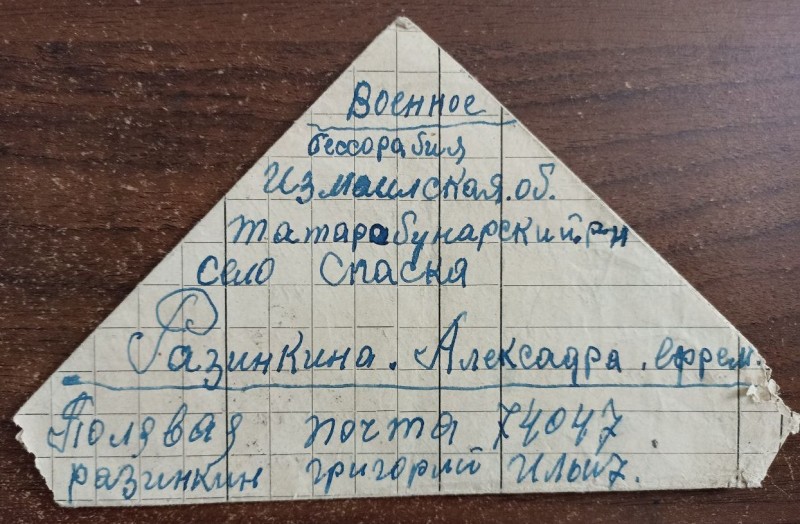 Военное
бессорабия
Измаилская.об.
татарабунарский.р-н
село Спаска
Разинкина. Алексадра. ефрем.
Полявая почта 74047
разинкин григорий Ильич.